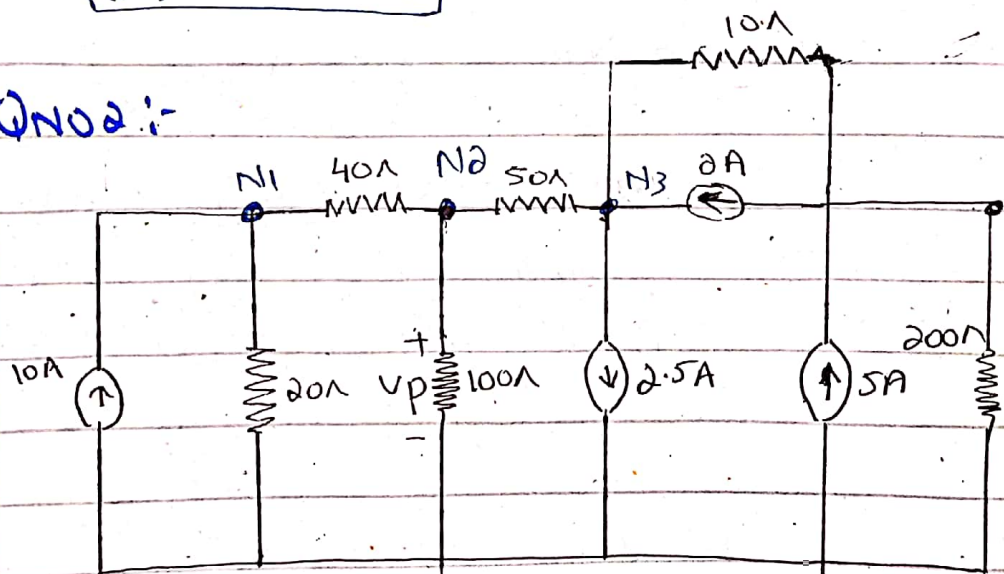 10Λ
QNO2:-
N1 40Λ N2 50Λ N3 2A
10A 20Λ + Vp - 100Λ 2.5A 5A 200Λ